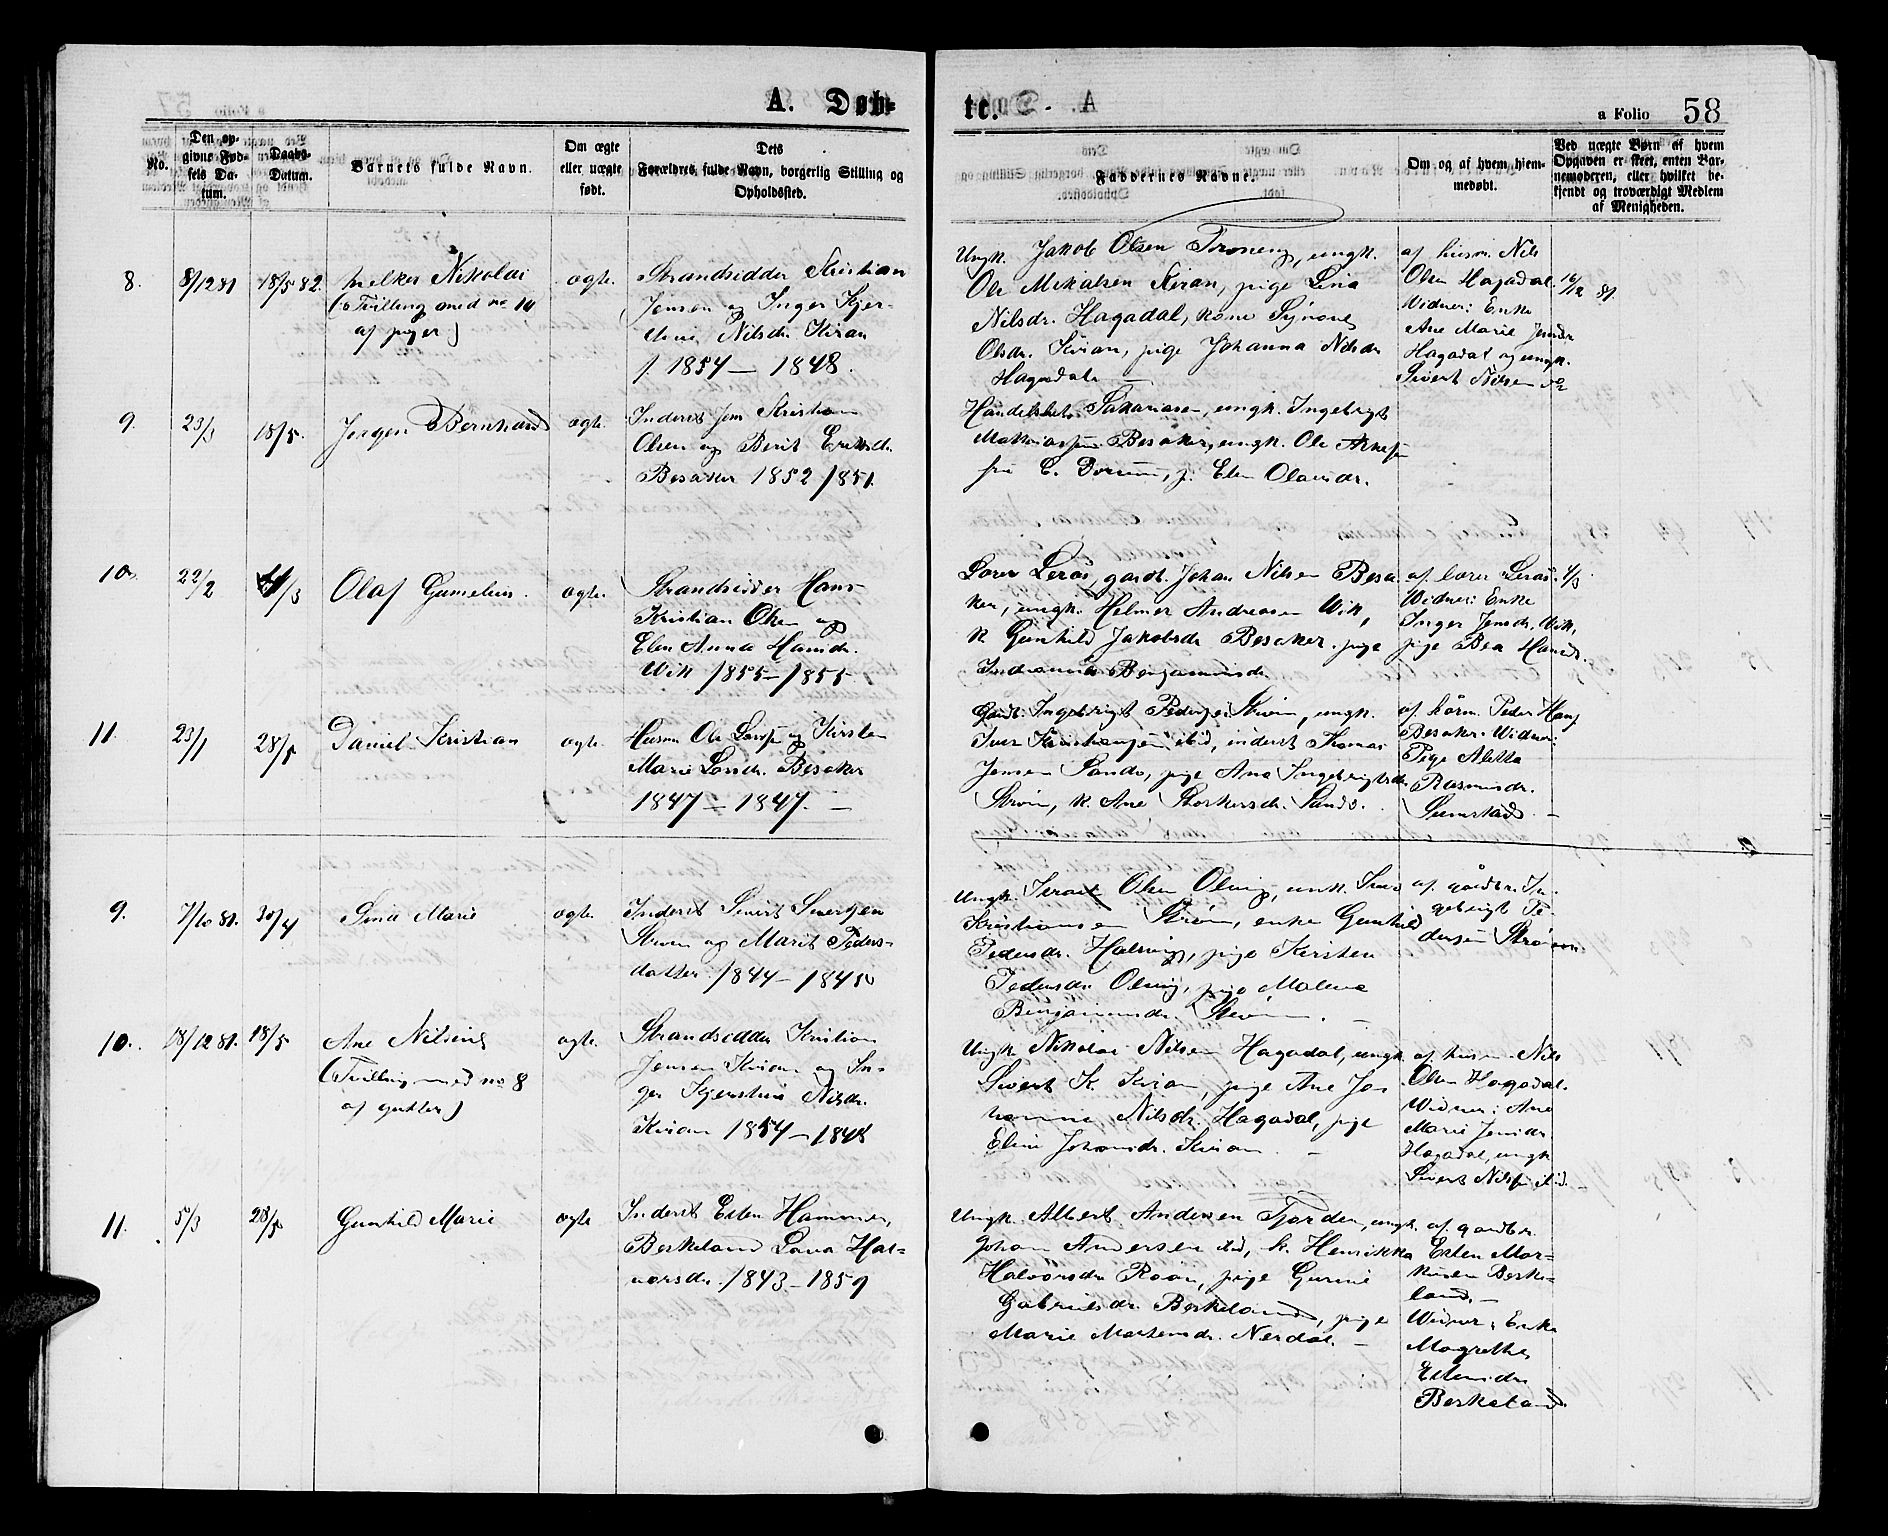 A. Døb-
te.
a Folio 58
No.
Den op-
givne Fød-
sels Da-
tum.
Daabs-
Datum.
Barnets fulde Navn.
Om ægte
eller uægte
født.
Dets
Forældres fulde Navn, borgerlig Stilling og
Opholdssted.
Faddernes Navne.
Om og af hvem hjem-
medøbt.
Ved uægte Børn af hvem
Opgaven er skeet, enten Bar-
nemoderen, eller hvilket be-
kjendt og troværdigt Medlem
af Menigheden.
8.
8/12 81
18/5 82.
Nikolai
(Tvilling med no 10
af piger)
ægte.
Strandsidder Kristian
Jensen og Inger Kjer-
stine Nilsdr. Kiran
f. 1854 — 1848.
Ungk. Jakob Olsen Troneng, ungk.
Ole Mikalsen Kiran, pige Lina
Nilsdr. Hagadal, kone
Olsdr. Kiran, pige Johanna Nilsdr
Hagadal. —
af husm. Nils
Olsen Hagadal.
Widner: Enke
Ane Marie Jensdr
Hagadal og ungk.
Sivert Nilsen
16/12 81.
9.
23/3
18/5.
Jørgen Bernhard
ægte.
Inderst Kristian
Olsen og Berit Eriksdr.
Besaker 1852 1851.
Sakariasen, ungk. Ingebrigt
Besaker, ungk. Ole
p. Elen Olausdr.
10.
22/2
/3
Olaf Gumelius.
ægte.
Strandsidder Hans
Kristian Olsen og
Elen Anna Hansdr.
Wik 1855 — 1855.
Lærer Lerås, gaardbr. Johan Nilsen Besa-
ker, ungk. Helmer Andreasen Wik,
k. Gunhild Jakobsdr Besaker. pige
Indianna Benjaminsdr.
af lærer Lerås.
Widner: Enke
Inger Jensdr. Wik,
pige Bea Hansdr.
4/3
11.
23/1
28/5
Daniel Kristian
ægte.
Husm Ole og Kirsten
Marie Larsdr. Besaker
1847 — 1847. —
Ingebrigt Pedersen Strøm, ungk.
Iver Kristiansen ibid, inderst Thomas
Jensen Sando, pige Ana Ingebrigtsdr.
Strøm, k. Ane Storkersdr. Sando.
af Peder Hansen
Besaker. Widner:
Pige Aletta
Rasmusdr.
Sumstad. —
9.
7/10 81.
30/4
Sina Marie
ægte.
Inderst Sivert Sivertsen
Strøm og Marit Peders-
datter. 1844 — 1845
Ungk. Israel Olsen Olving, ungk. Iver
Kristiansen Strøm, enke Gunhild
Pedersdr. Halsving, pige Kirsten
Pedersdr. Olving, pige Malene
Benjaminsdr. Strøm. —
af gårdbr. In-
gebrigt Pe-
dersen Strømm.
10.
18/12 81.
18/5
Ane Nilsine
(Tvilling med no 8
af gutter)
ægte.
Strandsidder Kristian
Jensen Kiran og In-
ger Kjerstine Nilsdr.
Kiran 1854 — 1848
Ungk. Nikolai Nilsen Hagadal, ungk.
Sivert K. Kiran, pige Ane Jo-
hanna Nilsdr. Hagadal, pige
Eline Johansdr. Kiran. —
af husm. Nils
Olsen Hagadal.
Widner: Ane
Marie Jensdr
Hagadal, ungk
Sivert Nilsen ibid. —
11.
5/3
28/5
Gunhild Marie
ægte
Inderst Esten
Berkeland Lava Hal-
vorsdr. 1843 — 1859
Ungk. Albert Andersen Fjorden, ungk.
Johan Andersen ibid, k. Henrikka
Halvorsdr Råen, pige Gurine
Gabrielsdr. Berkeland, pige
Marie Mortensdr. Nerdal. —
af gaardbr.
Esten Mar-
kusen Berke-
land. —
Widner: Enke
Magrethe
Estensdr
Berkeland